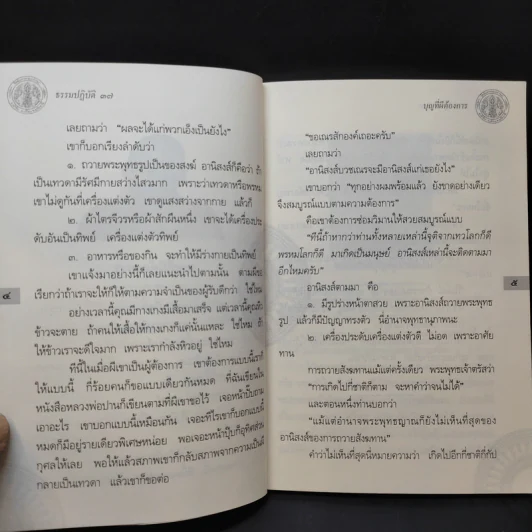 ธรรมปฏิบัติ ๓๗
เลยถามว่า "ผลจะได้แก่พวกเอ็งเป็นยังไง"
เขาก็บอกเรียงลำดับว่า
๑. ถวายพระพุทธรูปเป็นของสงฆ์ อานิสงส์ก็คือว่า ถ้า
เป็นเทวดามีรัศมีกายสว่างไสวมาก เพราะว่าเทวดาหรือพรหม
เขาไม่ดูกันที่เครื่องแต่งตัว เขาดูแสงสว่างจากกาย แล้วก็
๒. ผ้าไตรจีวรหรือผ้าสักผืนหนึ่ง เขาจะได้เครื่องประ
ดับอันเป็นทิพย์ เครื่องแต่งตัวทิพย์
๓. อาหารหรือของกิน จะทำให้มีร่างกายเป็นทิพย์
เขาแจ้งมาอย่างนี้ก็เลยแนะนำไปตามนั้น ตามผีขอ
เรียกว่าถ้าเราจะให้ก็ให้ตามความจำเป็นของผู้รับดีกว่า ใช่ไหม
อย่างเวลานี้คุณมีกางเกงมีเสื้อมาเสร็จ แต่เวลานี้คุณหิว
ข้าวจะตาย ถ้าคนให้เสื้อให้กางเกงก็แค่นั้นแหละ ใช่ไหม ถ้า
ให้ข้าวเราจะดีใจมาก เพราะเรากำลังหิวอยู่ ใช่ไหม
ทีนี้ในเมื่อผีเขาเป็นผู้ต้องการ เขาต้องการแบบนี้เราก็
ให้แบบนี้ กี่ร้อยคนก็ขอแบบเดียวกันหมด ที่ฉันเขียนใน
หนังสือหลวงพ่อปานก็เขียนตามที่ผีเขาขอไว้ เจอหน้าปั๊บถาม
เอาอะไร เขาบอกแบบนี้เหมือนกัน เจอะทีไรเขาก็บอกแบบนี้
หมดก็มีอยู่รายเดียวพิเศษหน่อย พอเจอะหน้าปุ๊บก็อุทิศส่วน
กุศลให้เลย พอให้แล้วสภาพเขาก็กลับสภาพจากความเป็นผี
กลายเป็นเทวดา แล้วเขาก็ขอต่อ
๔
บุญที่ผีต้องการ
"ขอเณรสักองค์เถอะครับ"
เลยถามว่า
"อานิสงส์บวชเณรจะมีอานิสงส์แก่เธอยังไง"
เขาบอกว่า "ทุกอย่างผมพร้อมแล้ว ยังขาดอย่างเดียว
จึงสมบูรณ์แบบตามความต้องการ"
คือเขาต้องการซ่อมวิมานให้สวยสมบูรณ์แบบ
"ทีนี้ถ้าหากว่าท่านทั้งหลายเหล่านี้จุติจากเทวโลกก็ดี
พรหมโลกก็ดี มาเกิดเป็นมนุษย์ อานิสงส์เหล่านี้จะติดตามมา
อีกไหมครับ"
อานิสงส์ตามมา คือ
๑. มีรูปร่างหน้าตาสวย เพราะอานิสงส์ถวายพระพุทธ
รูป แล้วก็มีปัญญาทรงตัว นี่อำนาจพุทธานุภาพนะ
๒. เครื่องประดับเครื่องแต่งตัวดี ไม่อด เพราะอาศัย
ทาน
การถวายสังฆทานแม้แต่ครั้งเดียว พระพุทธเจ้าตรัสว่า
"การเกิดไปกี่ชาติก็ตาม จะหาคำว่าจนไม่ได้"
และตอนหนึ่งท่านบอกว่า
"แม้แต่อำนาจพระพุทธญาณก็ยังไม่เห็นที่สุดของ
อานิสงส์ของการถวายสังฆทาน"
คำว่าไม่เห็นที่สุดนี่หมายความว่า เกิดไปอีกกี่ชาติกี่กัป
๕